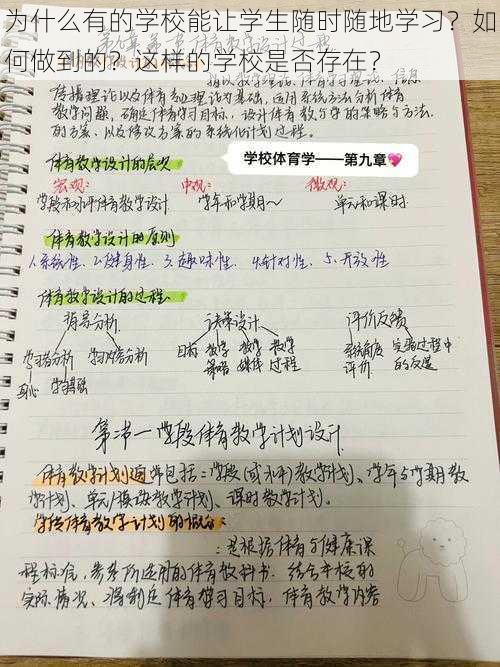 为什么有的学校能让学生随时随地学习？如
何做到的？这样的学校是否存在？
传播理论以及体育专业理论为基础，运用系统方法分析体育
教学问题，确定体育学习目标，设计体育教与学的策略与方法
的方案，以及修改方案的系统化计划过程。
学校体育学——第九章💖
体育教学设计的层次
宏观： 中观： 微观：
学段和水平体育教学设计 学年和学期～ 单元和课时
体育教学设计的原则
1.系统性、2.健身性、3.趣味性、4.针对性、5.开放性
体育教学设计的过程
指导分析 决策设计 评价反馈
学习者分析 学习内容分析 目标 教学策略 教学媒体 教学过程 实施过程中的反馈
身心
第一节 学段体育教学计划设计
体育教学计划通常包括：学段(或水平)教学计划、学年与学期教
学计划、单元/模块教学计划、课时教学计划。
学段体育教学计划的概念：
：是根据体育与健康课
程标准，参考所选用的体育教科书，结合本校的
实际情况、得制定体育学习目标，体育教学内容